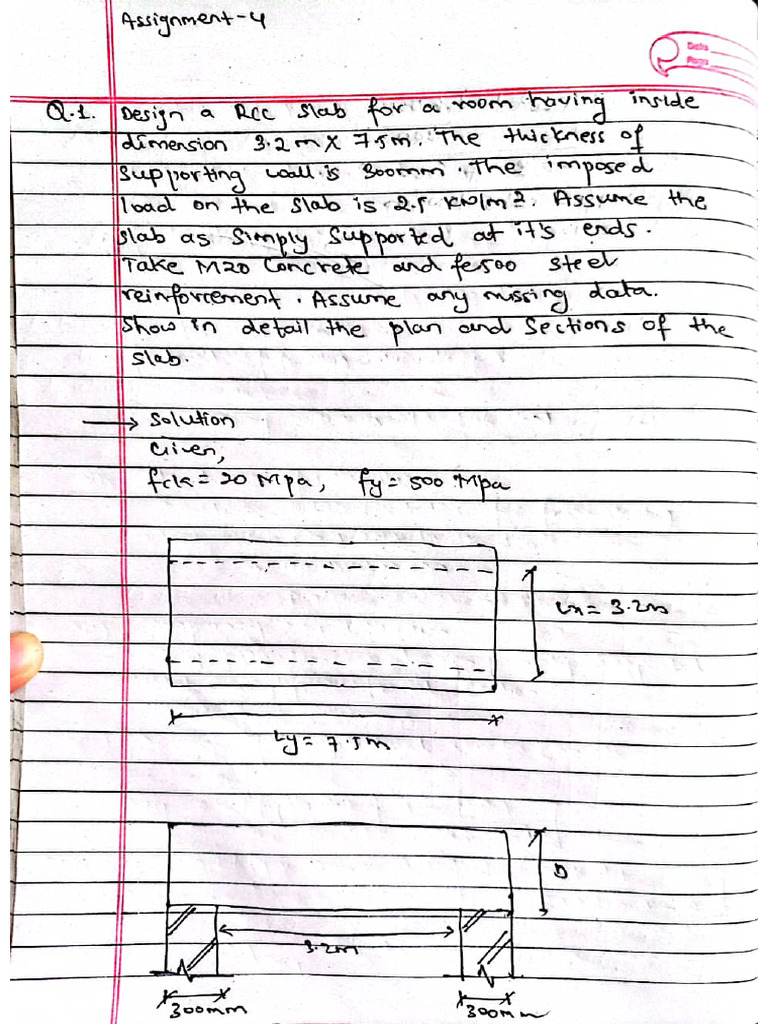 Assignment-4
Date
Page
Q.1. Design a RCC slab for a room having inside
dimension 3.2m X 7.5m. The thickness of
supporting wall is 300mm. The imposed
load on the slab is 2.5 kN/m². Assume the
slab as simply supported at it's ends.
Take M20 concrete and fe500 steel
reinforcement. Assume any missing data.
Show in detail the plan and sections of the
slab.
→ Solution
Given,
fck = 20 Mpa, fy = 500 Mpa
Lx = 3.2m
Ly = 7.5m
D
3.2m
300mm
300mm